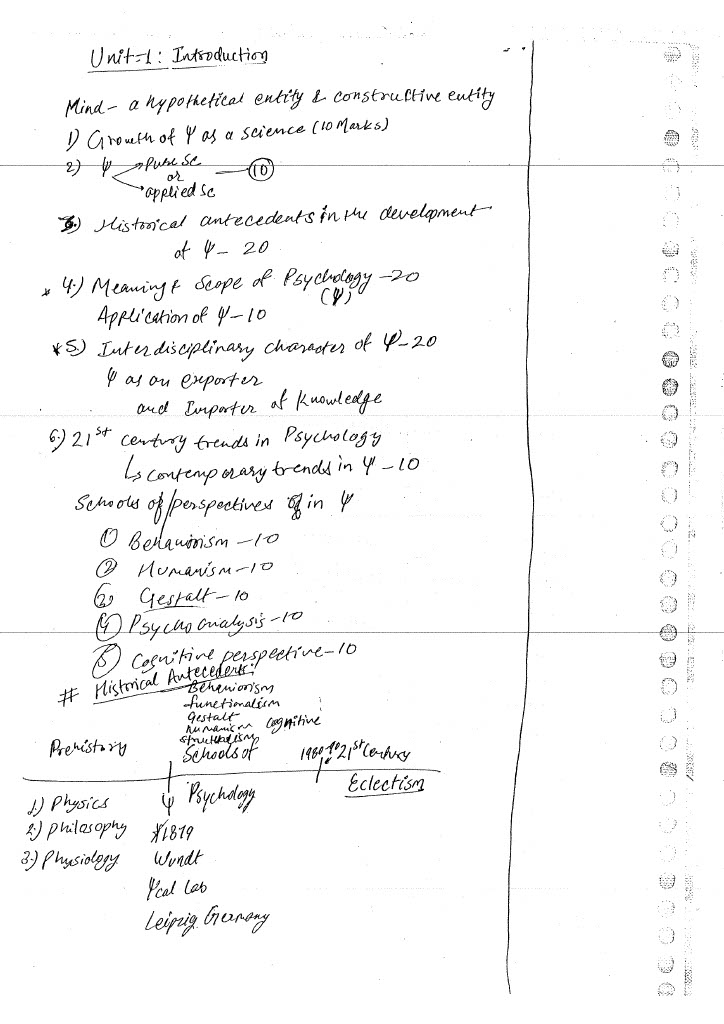 Unit-1: Introduction
Mind - a hypothetical entity & constructive entity
1) Growth of Ψ as a science (10 Marks)
2) Ψ → Pure Sc
or — 10
→ applied Sc
3.) Historical antecedents in the development
of Ψ - 20
* 4.) Meaning & Scope of Psychology - 20
(Ψ)
Application of Ψ - 10
* 5.) Interdisciplinary character of Ψ - 20
Ψ as an exporter
and Importer of Knowledge
6.) 21st century trends in Psychology
↳ contemporary trends in Ψ - 10
Schools of/perspectives of in Ψ
① Behaviorism - 10
② Humanism - 10
③ Gestalt - 10
④ Psychoanalysis - 10
⑤ Cognitive perspective - 10
# Historical Antecedents:
Behaviorism
functionalism
Gestalt
humanism cognitive
structuralism
Prehistory Schools of 1980 to 21st Century
1.) Physics Ψ Psychology Eclectism
2.) Philosophy *1879
3.) Physiology Wundt
Ψcal Lab
Leipzig, Germany